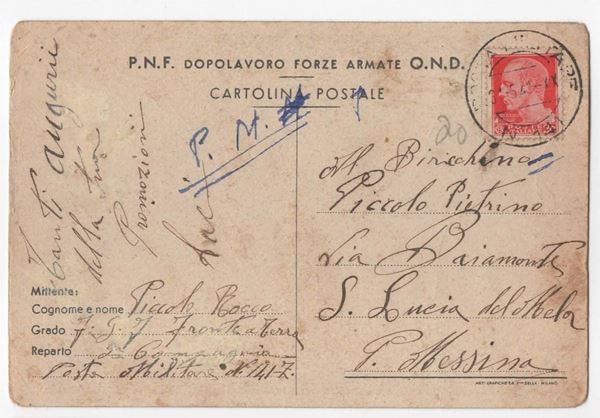 P.N.F. DOPOLAVORO FORZE ARMATE O.N.D.
CARTOLINA POSTALE
20
P. M.
Tanti Auguri
della tua
Promozioni
Al Birichino
Piccolo Pietrino
Via Baiamonte
S. Lucia del Mela
P. Messina
Mittente:
Cognome e nome Piccolo Rocco
Grado
Reparto Compagnia
Posta Militare N. 141-Z
ARTI GRAFICHE MILANO